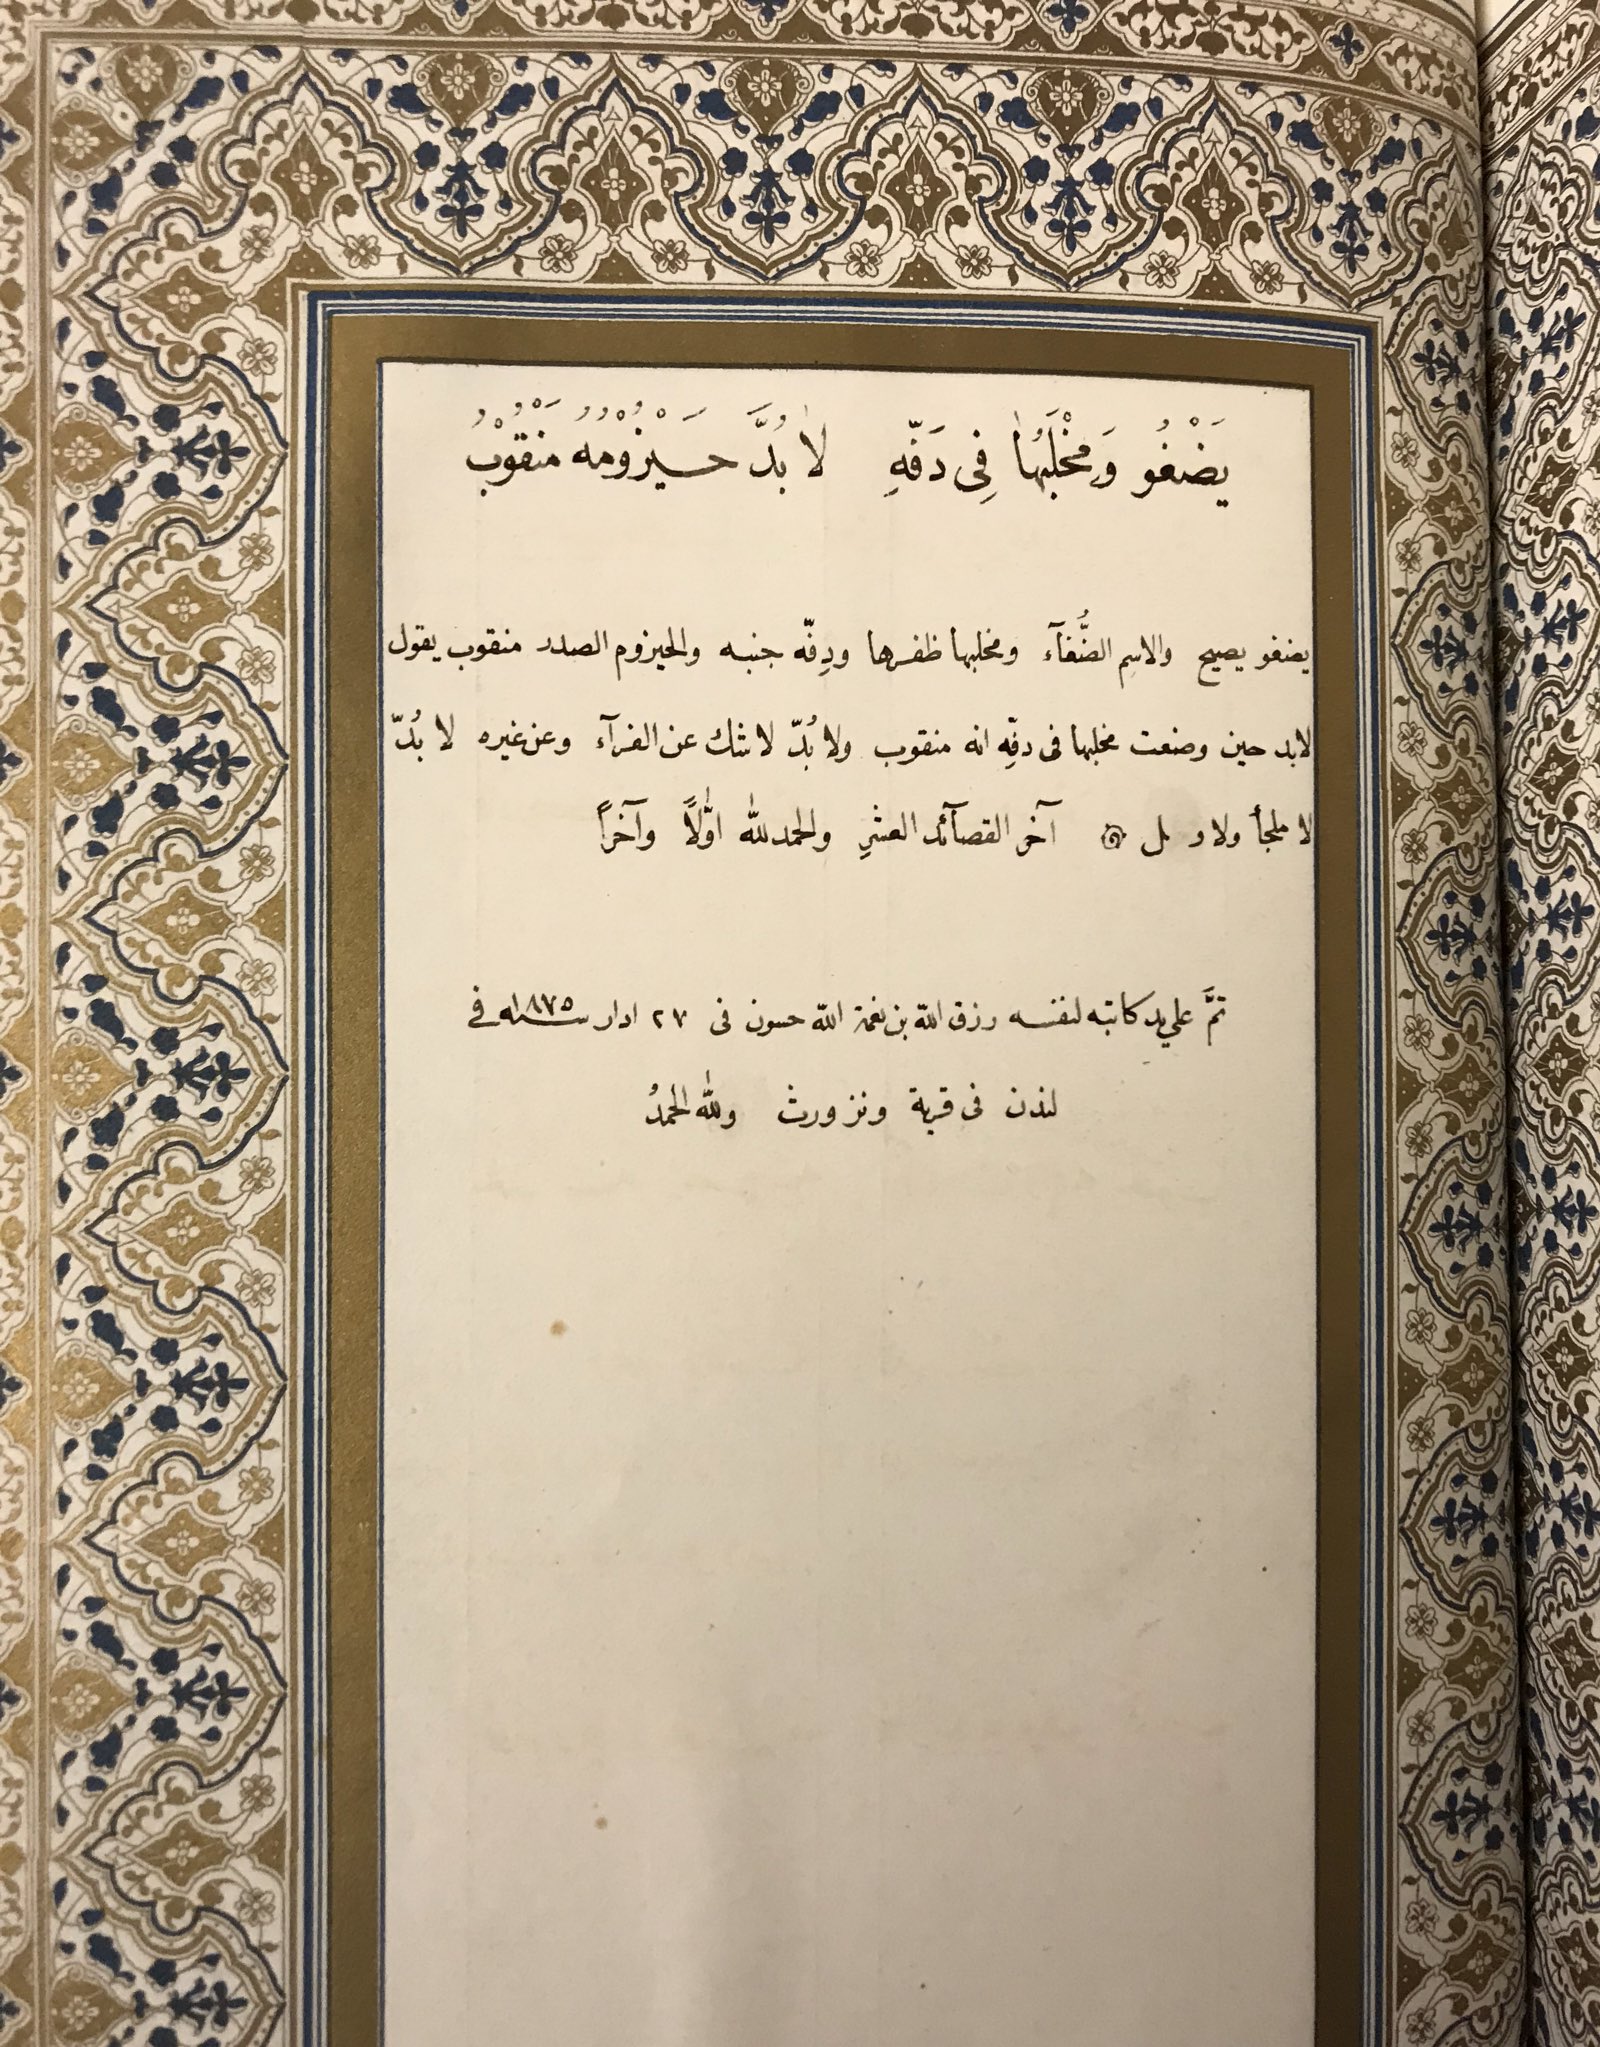 يَضْغُو وَمِخْلَبُهٰا فِى دَفّهِ لاٰ بُدَّ حَيْزُوْمُهُ مَنْقُوْبُ
يضغو يصيح والاسِم الضُّغآء ومخلبها ظفرها ودِفّه جنبه والحيزوم الصدر منقوب يقول
لابد حين وضعت مخلبها فى دفِّه انه منقوب ولا بُدّ لا شك عن الفرآء وعن غيره لا بُدّ
لا ملجأ ولا و ل آخر القصآئد العشرِ والحمد للّٰه اوّلاً وآخراً
تمَّ على يد كاتبه لنفسه رزق اللّه بن نعمة اللّه حسون فى ٢٧ ادار سنة ١٨٧٥ فى
لندن فى قرية ونزورث وللّٰه الحمدُ